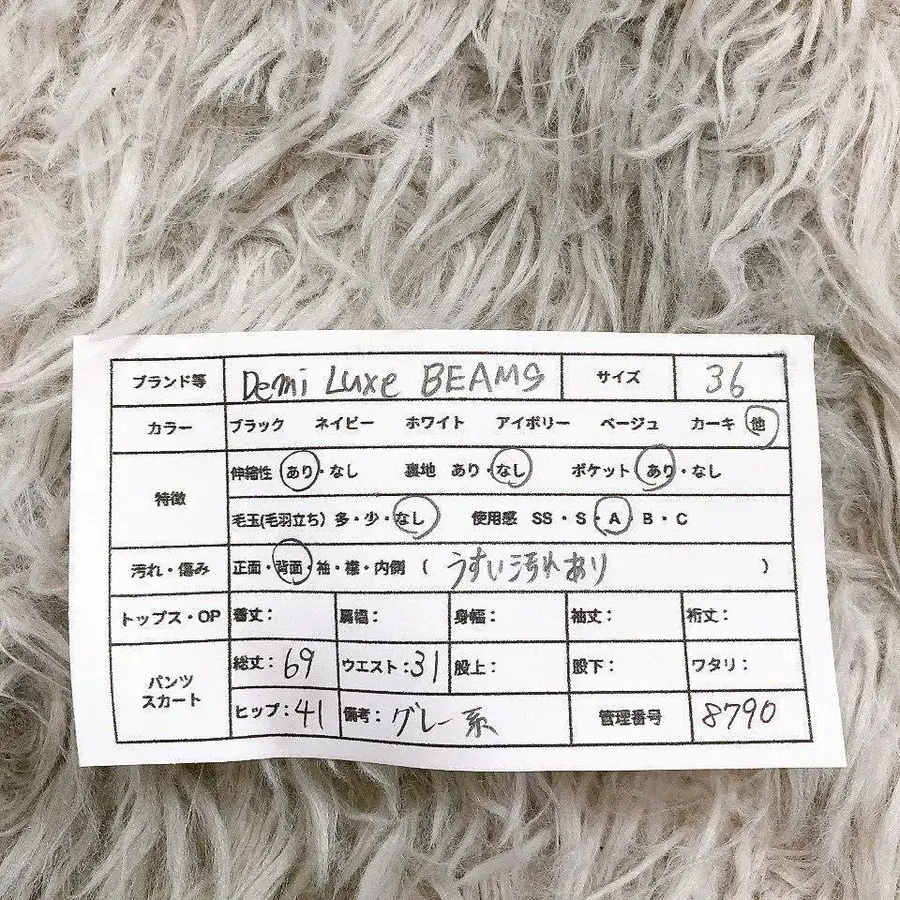 ブランド等 Demi Luxe BEAMS サイズ 36
カラー ブラック ネイビー ホワイト アイボリー ベージュ カーキ 他
特徴
伸縮性 あり・なし 裏地 あり・なし ポケット あり・なし
毛玉(毛羽立ち) 多・少・なし 使用感 SS・S・A・B・C
汚れ・傷み 正面・背面・袖・襟・内側 ( うすい汚れあり )
トップス・OP 着丈: 肩幅: 身幅: 袖丈: 裄丈:
パンツ
スカート
総丈:69 ウエスト:31 股上: 股下: ワタリ:
ヒップ:41 備考:グレー系 管理番号 8790